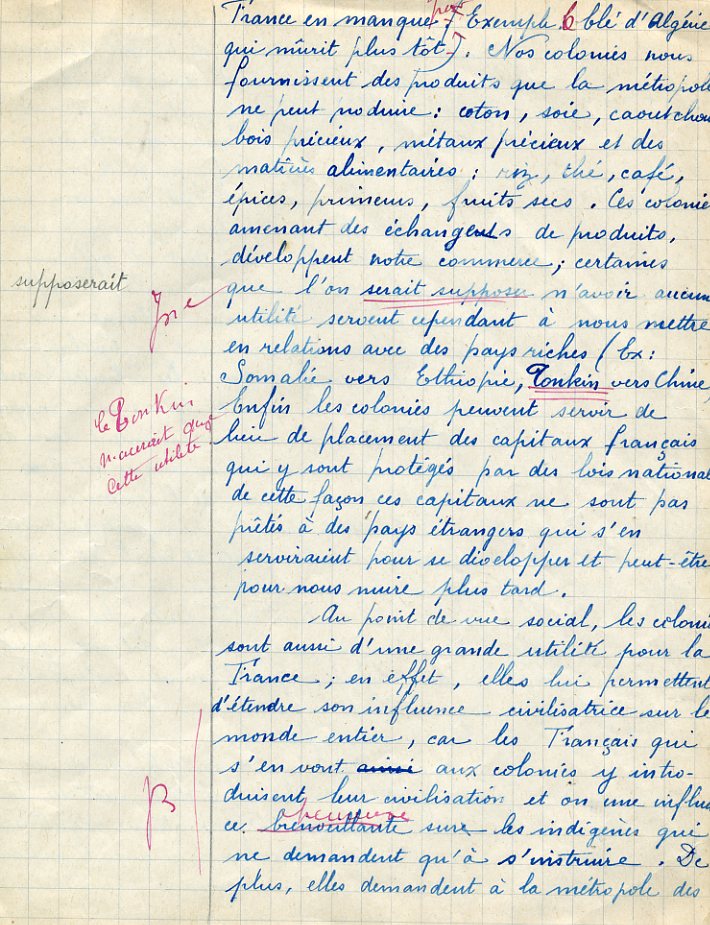 France en manque (Exemple le blé d'Algérie
qui mûrit plus tôt). Nos colonies nous
fournissent des produits que la métropole
ne peut produire : coton, soie, caoutchou
bois précieux, métaux précieux et des
matières alimentaires : riz, thé, café,
épices, primeurs, fruits secs. Ces colonie
amenant des échanges de produits,
développent notre commerce ; certaines
supposerait
que l'on serait supposer n'avoir aucun
utilité servent cependant à nous mettre
en relations avec des pays riches (Ex :
Somalie vers Ethiopie, Tonkin vers Chine,
le Tonkin
n'aurait que
cette utilité
Enfin les colonies peuvent servir de
lieu de placement des capitaux français
qui y sont protégés par des lois national
de cette façon ces capitaux ne sont pas
prêtés à des pays étrangers qui s'en
serviraient pour se développer et peut-être
pour nous nuire plus tard.
Au point de vue social, les coloni
sont aussi d'une grande utilité pour la
France ; en effet, elles lui permettent
d'étendre son influence civilisatrice sur le
monde entier, car les Français qui
s'en vont ainsi aux colonies y intro-
B
duisent leur civilisation et on une influ
ce bienveillante sur les indigènes qui
ne demandent qu'à s'instruire. De
plus, elles demandent à la métropole des